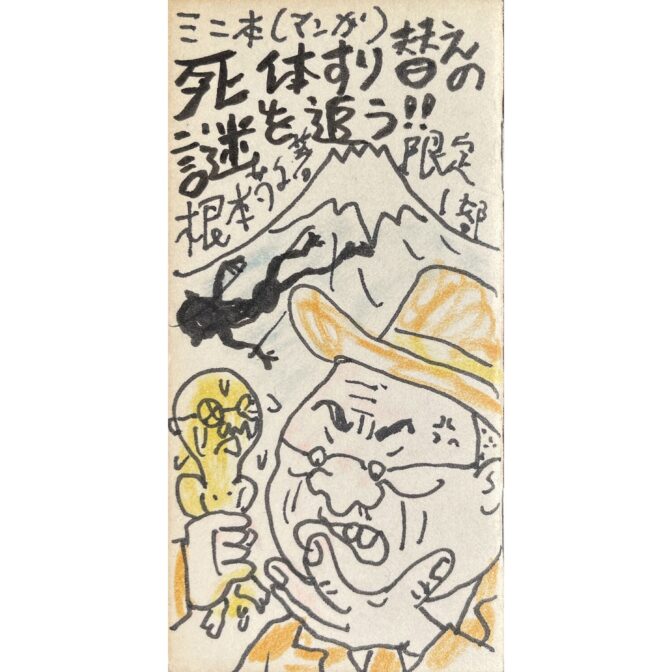 ミニ本(マンガ)
死体すり替えの
謎を追う!!
根本敬著
限定
1部